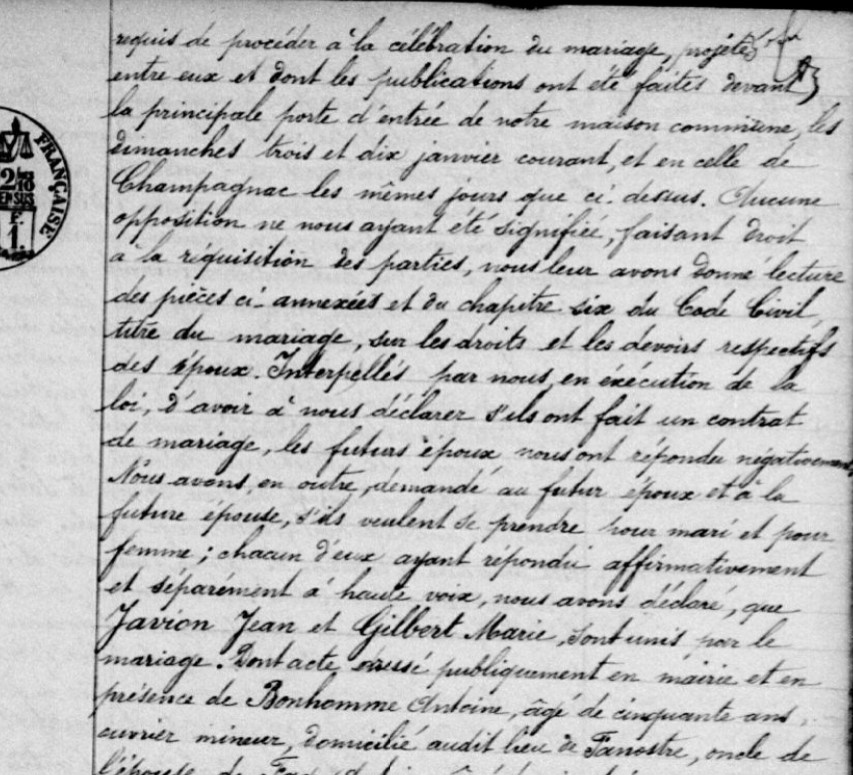 requis de procéder à la célébration du mariage, projeté
entre eux et dont les publications ont été faites devant
la principale porte d'entrée de notre maison commune, les
dimanches trois et dix janvier courant, et en celle de
Champagnac les mêmes jours que ci-dessus. Aucune
opposition ne nous ayant été signifiée, faisant droit
a la réquisition des parties, nous leur avons donné lecture
des pièces ci-annexées et du chapitre six du Code Civil,
titre du mariage, sur les droits et les devoirs respectifs
des époux. Interpellés par nous, en éxécution de la
loi, d'avoir à nous déclarer s'ils ont fait un contrat
de mariage, les futurs époux nous ont répondu négativement,
Nous avons, en outre, demandé au futur époux et à la
future épouse, s'ils veulent se prendre pour mari et pour
femme; chacun d'eux ayant répondu affirmativement
et séparément à haute voix, nous avons déclaré, que
Javion Jean et Gilbert Marie, sont unis par le
mariage. Dont acte dressé publiquement en mairie et en
présence de Bonhomme Antoine, âgé de cinquante ans,
ouvrier mineur, domicilié audit lieu de Fanostre, oncle de
l'épouse, de
FRANÇAISE